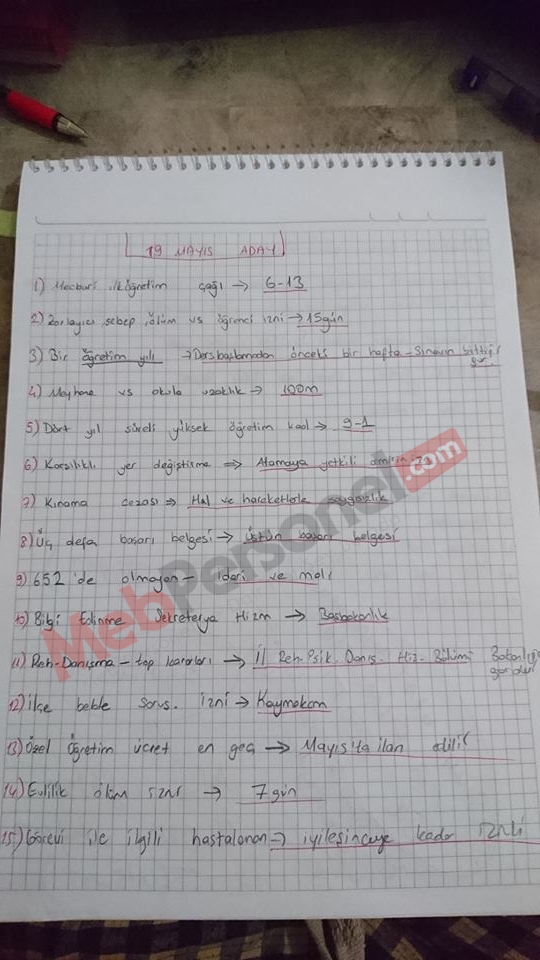 19 MAYIS ADAY
1) Mecburi ilköğretim çağı → 6-13
2) Zorlayıcı sebep ölüm vs öğrenci izni → 15gün
3) Bir öğretim yılı → Ders başlamadan önceki bir hafta - Sınavın bittiği gün
4) Meyhane vs okula uzaklık → 100m
5) Dört yıl süreli yüksek öğretim kad → 9-1
6) Karşılıklı yer değiştirme ⇒ Atamaya yetkili amirin
7) Kınama cezası ⇒ Hal ve hareketlerle saygısızlık
8) Üç defa başarı belgesi → üstün başarı belgesi
9) 652'de olmayan - İdari ve mali
10) Bilgi Edinme Sekreterya Hizm → Başbakanlık
11) Reh-Danışma - top kararları → İl Reh. Psik. Danış. Hiz. Bölümü Bakanlığa gönder
12) İlçe bekle sorus. izni → Kaymakam
13) Özel Öğretim ücret en geç → Mayıs'ta ilan edilir
14) Evlilik ölüm izni → 7 gün
15) Görevi ile ilgili hastalanan → iyileşinceye kadar izinli
MebPersonel.com